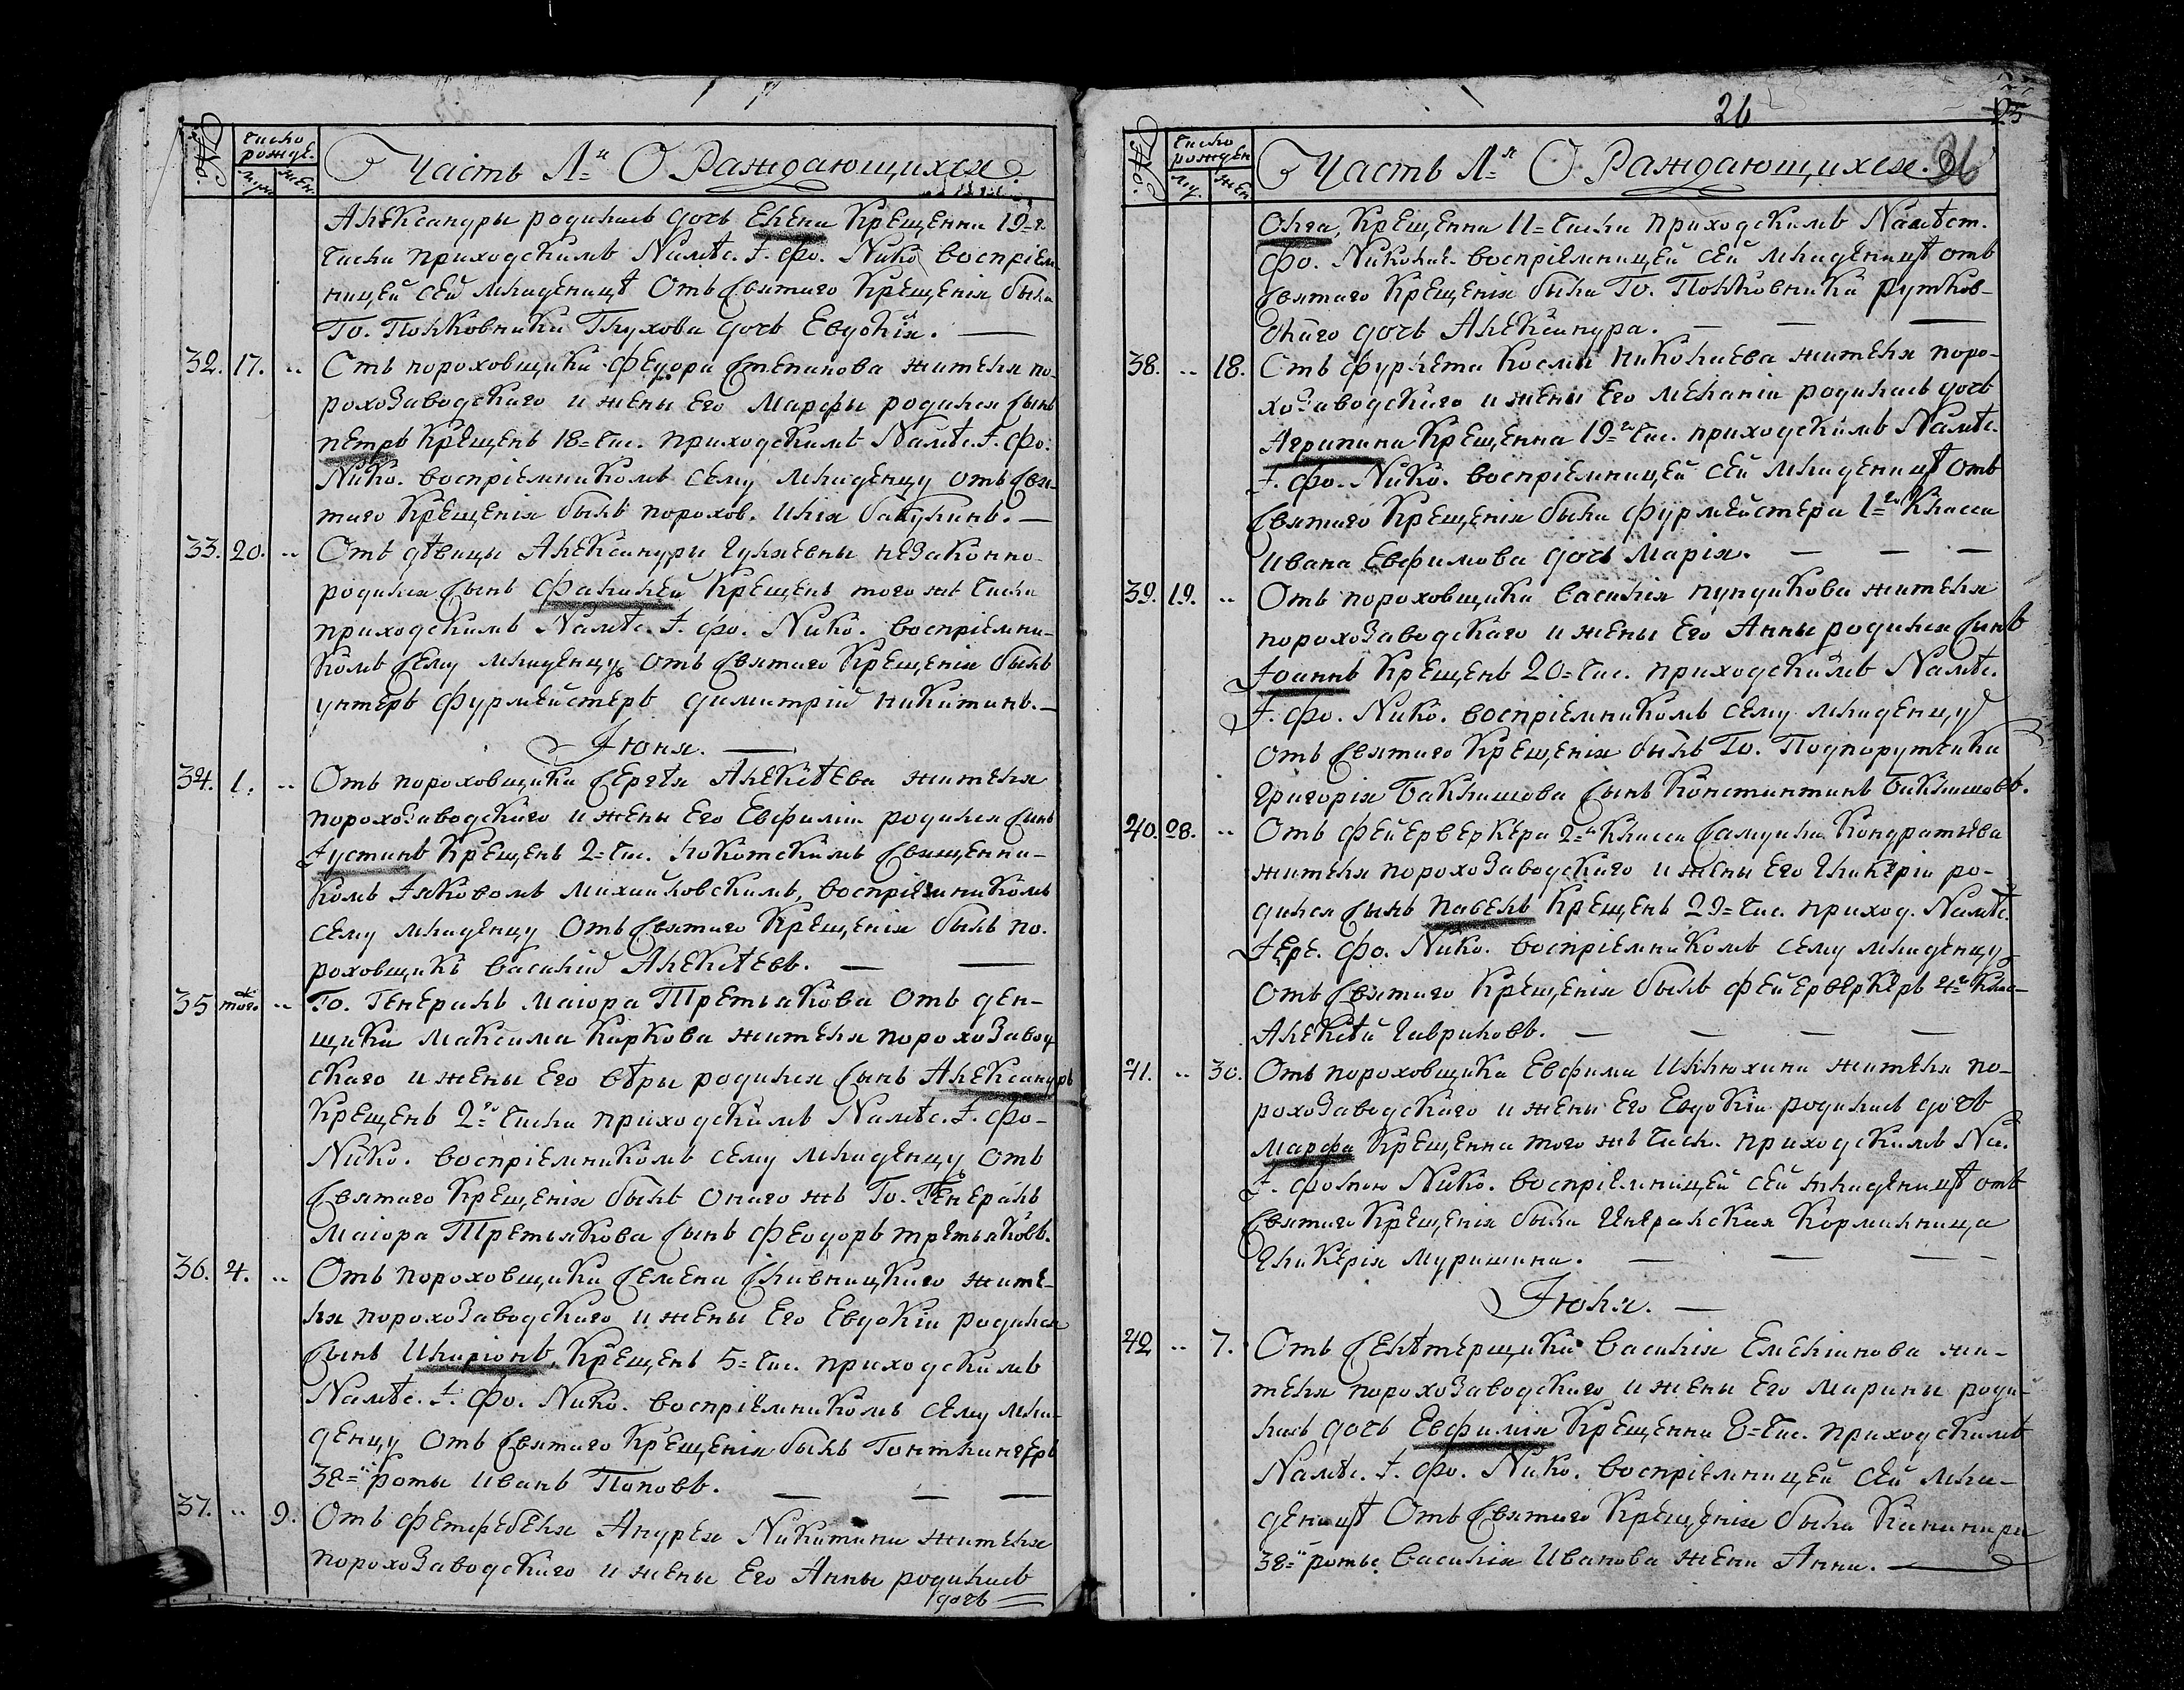 №.
число рожде.
муж. жен.
Часть 1я О Раждающихся.
Александры родилась дочь Елена Крещенна 19=г.
числа приходскимъ Намѣс. І. Фо. Нико. воспріем-
ницей сей младеницѣ Отъ Святаго Крещенія была
Го. Полковника Глухова дочь Евдокія. —
32. 17. .. Отъ пороховщика Федора Степанова жителя по-
роховаводскаго и жены Его Марфы родился Сынъ
петръ Крещенъ 18=чис. приходскимъ Намѣс. І. Фо:
Нико. воспріемникомъ сему младенцу отъ Свя-
таго Крещенія былъ порохов. Илія бакулинъ. —
33. 20. .. Отъ дѣвицы Александры Гуляевны незаконно-
родился Сынъ Фалилей Крещенъ того жъ числа
приходскимъ Намѣс. І. Фо. Нико. воспріемни-
комъ Сему младенцу отъ Святаго Крещенія былъ
унтеръ Фурмейстеръ димитрій никитинъ. —
Іюня. —
34. 1. .. Отъ пороховщика Сергѣя Алексѣева жителя
пороховаводскаго и жены Его Евфиміи родился Сынъ
Іустинъ Крещенъ 2=чис. Священни-
комъ Іяковомъ Михайловскимъ, воспріемникомъ
сему младенцу Отъ Святаго Крещенія былъ по.
роховщикъ Василій Алексѣевъ. — —
35 тогож .. Го. Генералъ маіора Третьакова Отъ ден-
щика Максима Каркова жителя пороховавод
скаго и жены Его вѣры родился Сынъ Александръ
Крещенъ 2=го числа приходскимъ Намѣс. І. Фо-
Нико. воспріемникомъ сему младенцу Отъ
Святаго Крещенія былъ Онаго жъ Го. Генералъ
Маіора Третьякова Сынъ Феодоръ третьяковъ.
36. 4. .. Отъ пороховщика Семена Сливницкаго жите-
ля пороховаводскаго и жены Его Евдокіи родился
Сынъ Иларіонъ, Крещенъ 5=чис. приходскимъ
Намѣс. І. Фо. Нико. воспріемникомъ сему мла-
денцу Отъ Святаго Крещенія былъ Гантлангеръ
38=й роты Иванъ Поповъ. — — —
37. .. 9. Отъ Фелтфебеля Андрея Никитина жителя
пороховаводскаго и жены Его Анны родилась
дочь
26
25
№.
число рожден
му. жен
Часть 1я О Раждающихся. 26
Олга, Крещенна 11=числа приходскимъ Намѣст.
Фо. Николае. воспріемницей сей младеницѣ отъ
Святаго Крещенія была Го. Полковника рутков-
скаго дочь Александра. — — —
38. .. 18. Отъ Фурлета Космы Николаева жителя поро-
ховаводскаго и жены Его Меланіи родилась дочь
Агрипина Крещенна 19=го чис. приходскимъ Намѣс.
І. Фо. Нико. воспріемницей сей младеницѣ отъ
Святаго Крещенія была Фурмейстера 1=го Класса
Ивана Евфимова дочь Марія. — — —
39. 19. .. Отъ пороховщика Василія пундикова жителя
пороховаводскаго и жены Его Анны родился Сынъ
Іоаннъ Крещенъ 20=чис. приходскимъ Намѣс.
І. Фо. Нико. воспріемникомъ сему младенцу
отъ Святаго Крещенія былъ Го. Подпорутчика
Григорія Баклашова Сынъ Константинъ Баклашовъ.
40. 28. .. Отъ Фейерверкера 2=го Класса Самуила Кондратьева
жителя пороховаводскаго и жены Его Гликеріи ро-
дился Сынъ павелъ Крещенъ 29=чис. приход. Намѣс.
Іере. Фо. Нико. воспріемникомъ сему младенцу
Отъ Святаго Крещенія былъ Фейерверкеръ 4=го Клас-
Алексѣй Гавриловъ. — — — —
41. .. 30. Отъ пороховщика Евфима Илюхина жителя по-
роховаводскаго и жены Его Евдокіи родилась дочь
Марфа Крещенна того жъ числ. приходскимъ На.
І. Фомою Нико. воспріемницей сей младеницѣ отъ
Святаго Крещенія была Кормилница
Гликерія Муришина. — — —
Іюля. —
42 .. 7. Отъ Селѣтерщика Василія Емеліанова жи-
теля пороховаводскаго и жены Его Марины роди-
лась дочь Евфимія Крещенна 8=чис. приходскимъ
Намѣс. І. Фо. Нико. воспріемницей сей мла-
деницѣ Отъ Святаго Крещенія была Канонера
38=й роты Василія Иванова жена Анна. —